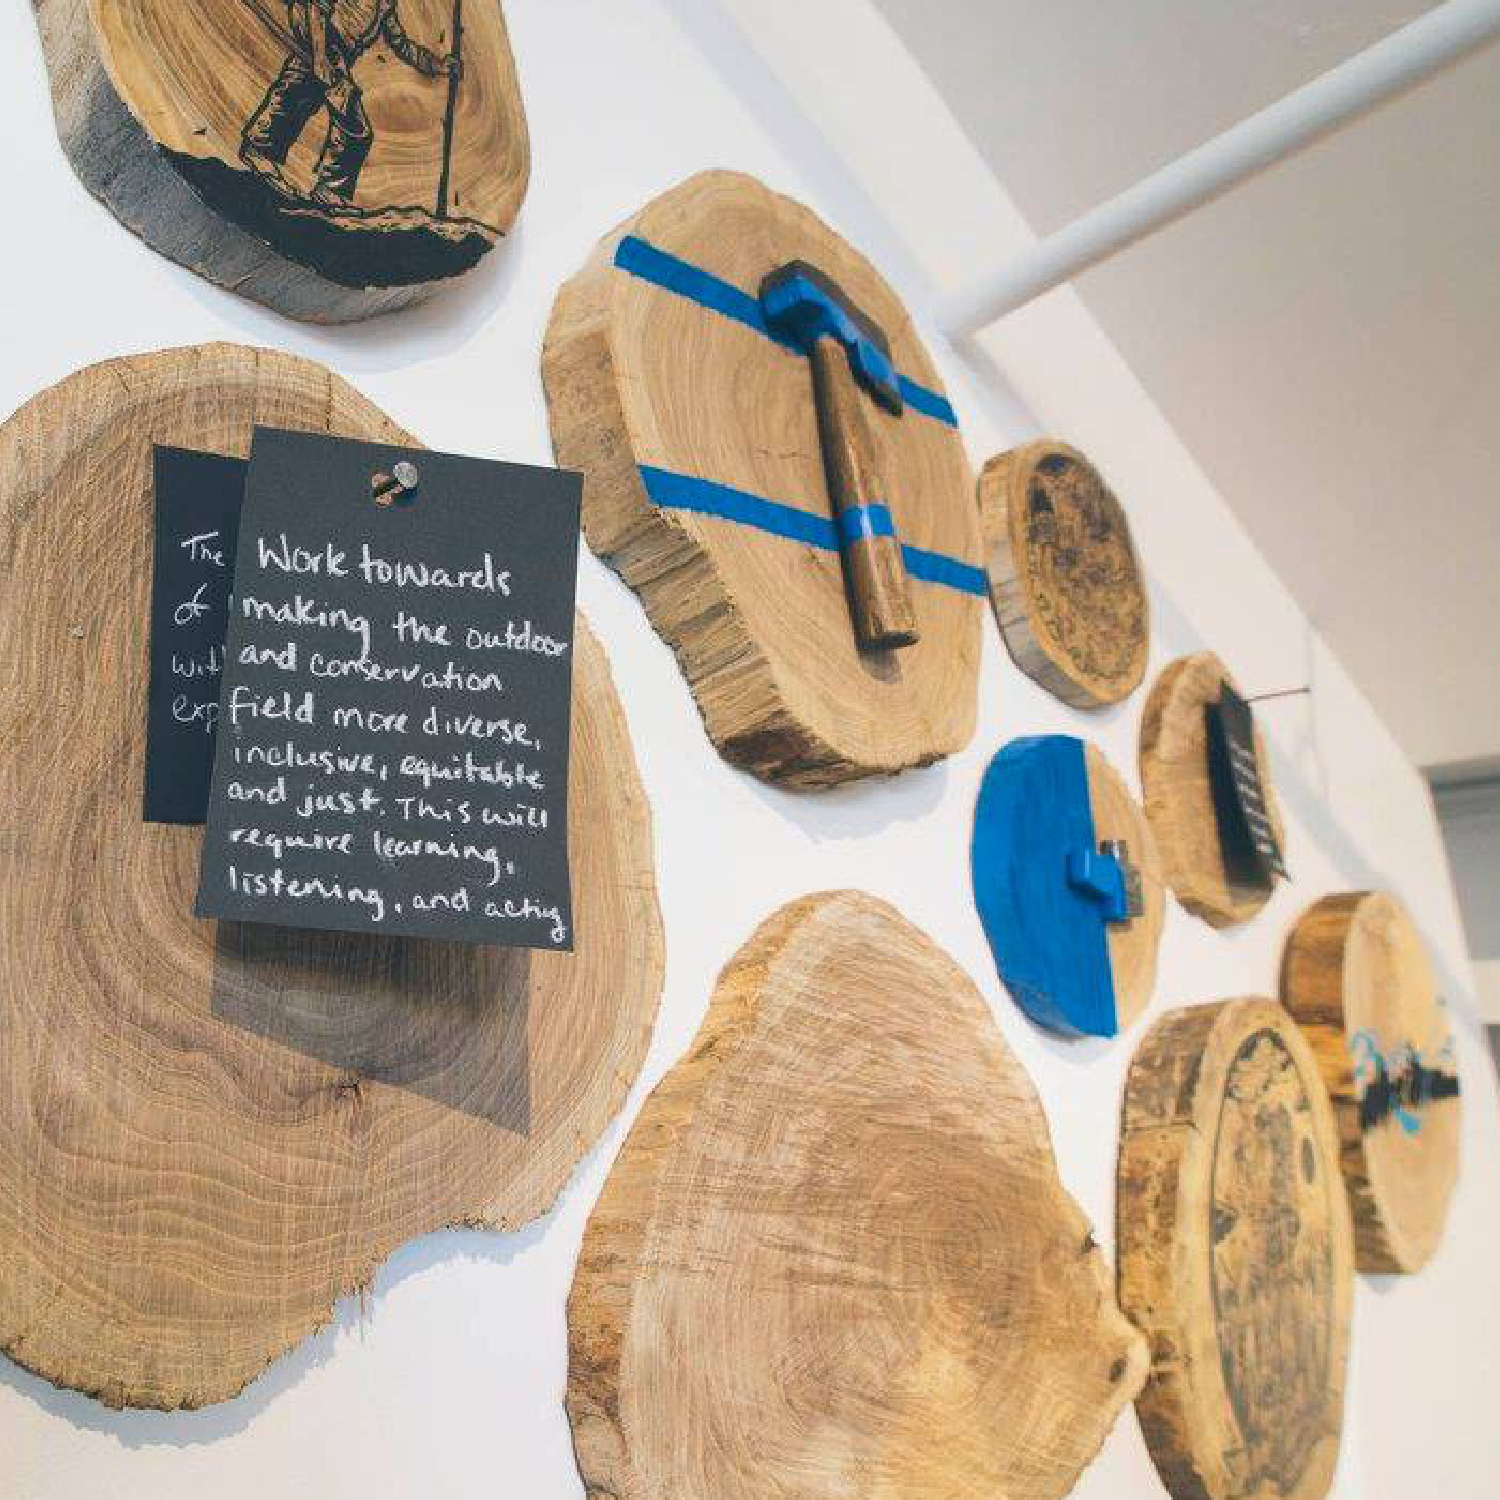 The
of
Work towards
making the outdoor
and conservation
field more diverse,
inclusive, equitable
and just. This will
require learning,
listening, and acting